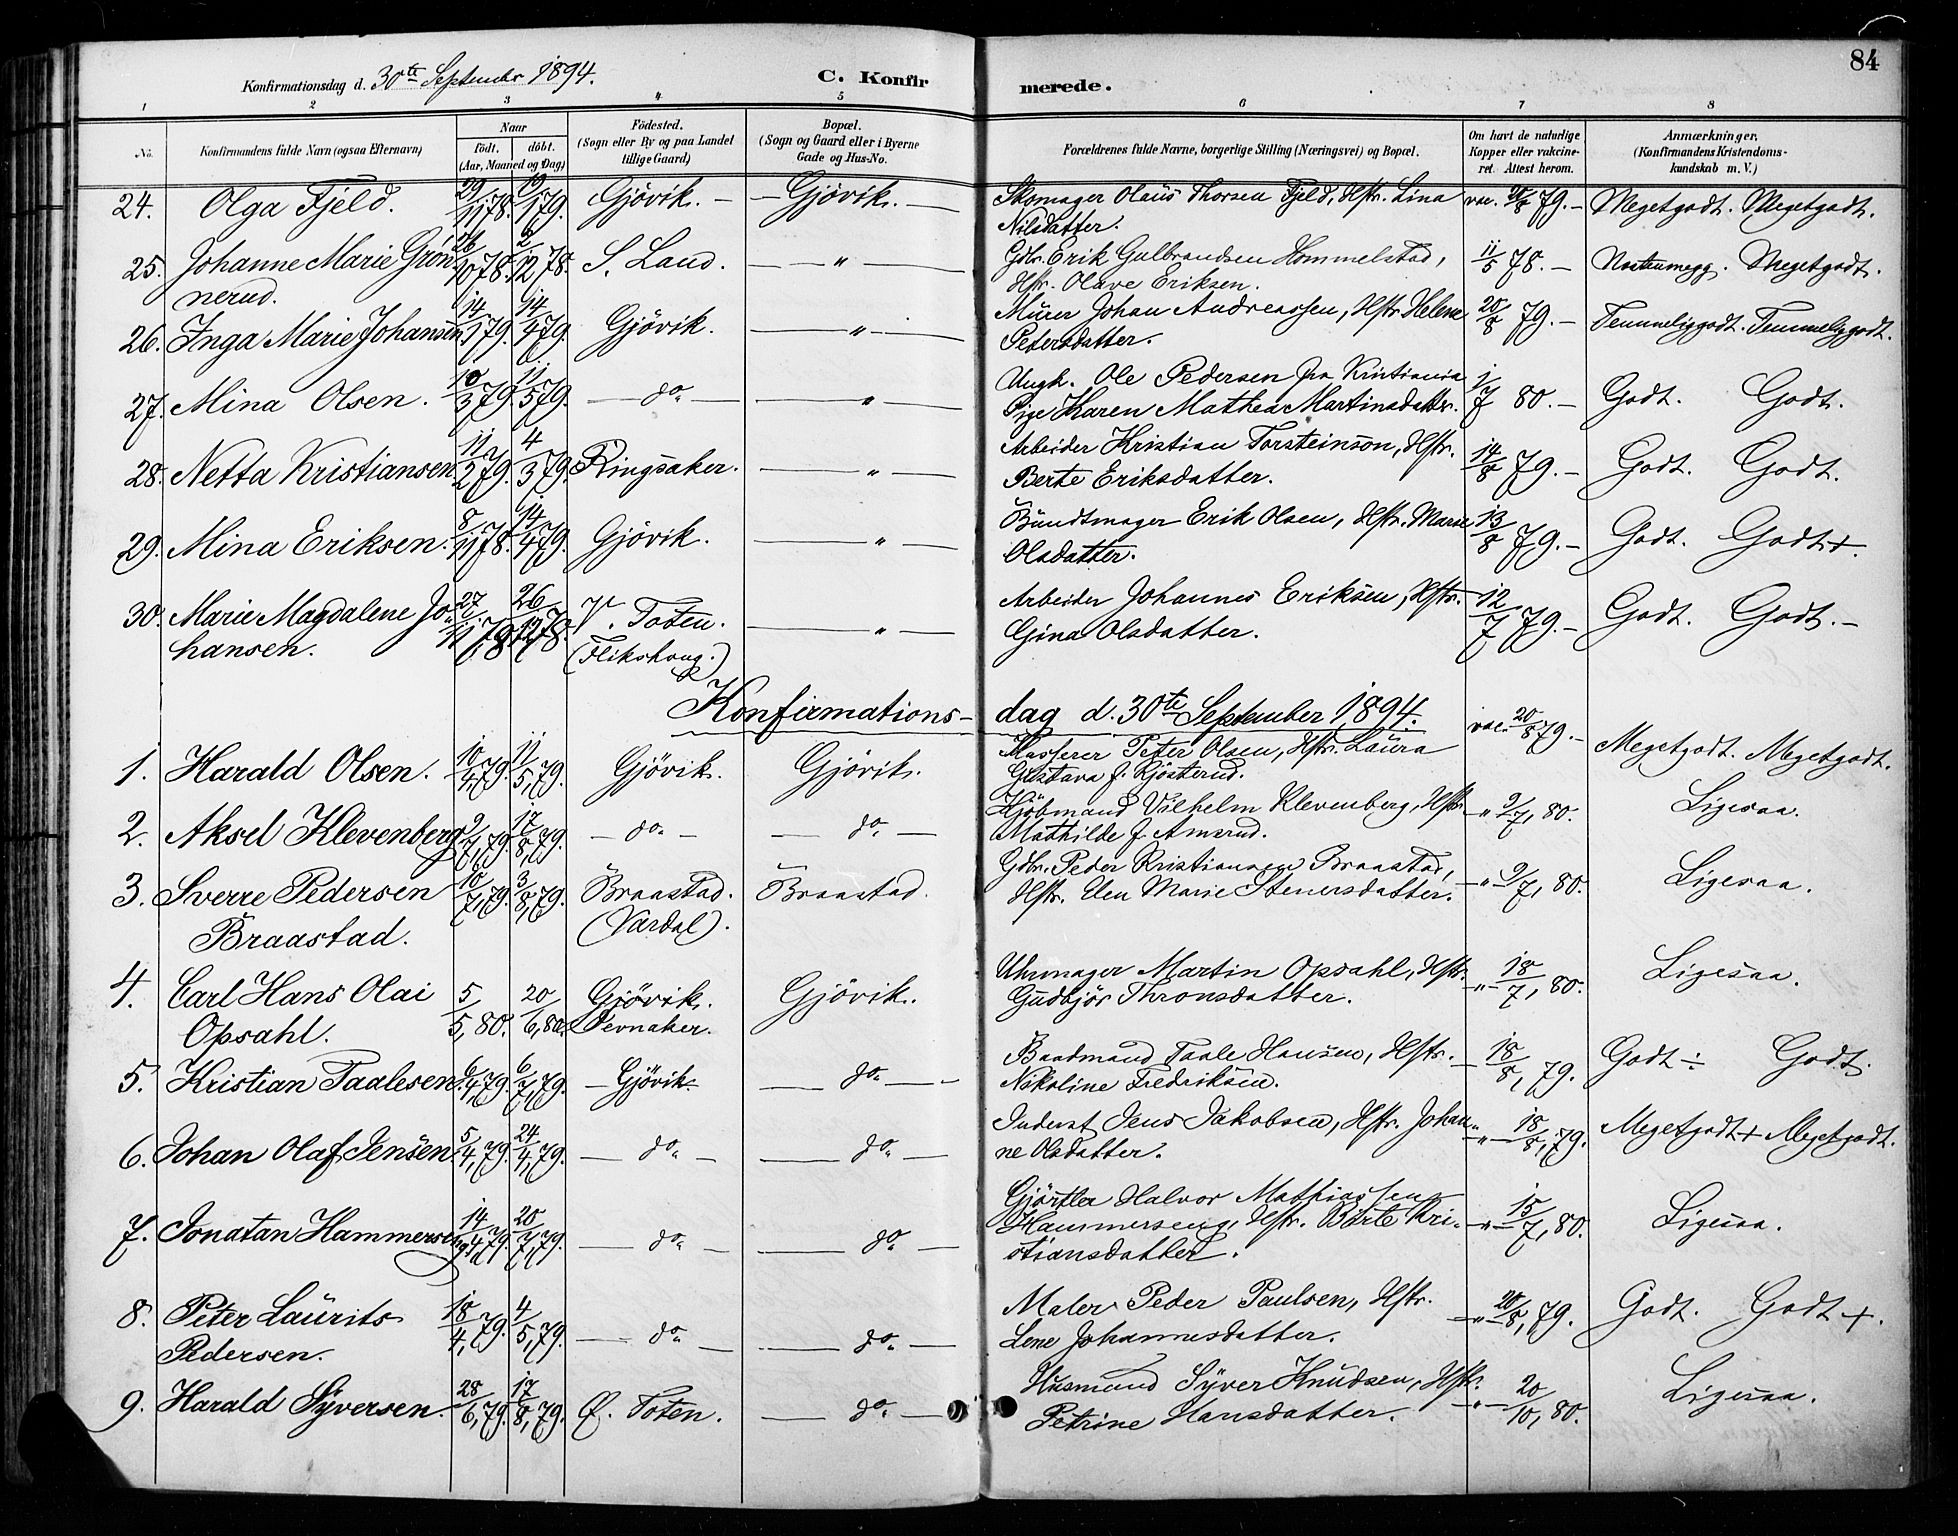 84
Konfirmationsdag d. 30te September 1894. C. Konfir merede.
1 2 3 4 5 6 7 8
No. Konfirmandens fulde Navn (ogsaa Efternavn) Naar födt. döbt. (Aar, Maaned og Dag) Födested. (Sogn eller By og paa Landet tillige Gaard) Bopæl. (Sogn og Gaard eller i Byerne Gade og Hus-No. Forældrenes fulde Navne, borgerlige Stilling (Næringsvei) og Bopæl. Om havt de naturlige Kopper eller vakcineret. Attest herom. Anmærkninger. (Konfirmandens Kristendomskundskab m. V.)
24. Olga Fjeld. 29/11 78. 19/1 79. Gjövik. – – Gjövik. – Skomager Olaüs Thorsen Fjeld, Hstr. Lina vac. 20/8 79. – Megetgodt. Megetgodt.
Nilsdatter.
25. Johanne Marie Grön- 26/10 78. 2/12 78. S. Land. – " – Gdbr. Erik Gulbrandsen Hommelstad, 11/5 78. – Megetgodt.
nerud. Hstr. Olave Eriksen.
26. Inga Marie Johansen 14/1 79. 14/4 79. Gjövik. – " – Mürer Johan Andreassen, Hstr. Helene 20/8 79. – Temmeliggodt. Temmeliggodt.
Petersdatter.
27. Mina Olsen. 10/3 79. 11/5 79. – do – – " – Ungk. Ole Pedersen fra Kristiania 1/7 80. – Godt. Godt.
Pige Karen Mathea Martinsdatter.
28. Netta Kristiansen 11/2 79. 4/3 79. Ringsaker. – " – Arbeider Kristian Torsteinson, Hstr. 14/8 79. – Godt. Godt.
Berte Eriksdatter.
29. Mina Eriksen. 8/11 78. 14/4 79. Gjövik. – " – Bündtmager Erik Olsen, Hstr. Marie 13/8 79. – Godt. Godt+.
Olsdatter.
30. Marie Magdalene Jo- 27/11 78 26/12 78. V. Toten. – " – Arbeider Johannes Eriksen, Hstr. 12/7 79. – Godt. Godt. –
hansen. (Flikshoug.) Gina Olsdatter.
Konfirmations- dag d. 30te September 1894.
1. Harald Olsen. 10/4, 79. 11/5, 79. Gjövik. Gjövik. Kasserer Peter Olsen, Hstr. Laura vac. 20/8 79. – Megetgodt. Megetgodt.
Gustava f. Kjösterud.
2. Aksel Klevenberg 9/7, 79. 17/8, 79. – do – – do – Kjöbmand Vilhelm Klevenberg, Hstr. – " – 9/7, 80. Ligesaa.
Mathilde f. Amsrud.
3. Sverre Pedersen 10/7, 79. 3/8, 79. Braastad. Braastad. Gdbr. Peder Kristiansen Braastad, – " – 9/7, 80. Ligesaa.
Braastad. (Vardal). Hstr. Elen Marie Stenersdatter.
4. Carl Hans Olai 5/5, 80. 20/6, 80. Gjövik. Gjövik. Uhrmager Martin Opsahl, Hstr. – " – 18/7, 80. Ligesaa.
Opsahl. Jevnaker. Gudbjör Thronsdatter.
5. Kristian Taalesen 6/4, 79. 6/7, 79. – Gjövik. – do – – Baadmand Taale Hansen, Hstr. – 18/8, 79. Godt ÷ Godt.
Nikoline Fredriksen.
6. Johan Olaf Jensen 5/4, 79. 24/4, 79. – do – – do – Inderst Jens Jakobsen, Hstr. Johan- – " – 18/8, 79. Megetgodt+ Megetgodt.
ne Olsdatter.
7. Jonatan Hammerseng 14/4 79. 20/7, 79. – do – – do – Gjörtler Halvor Mathiassen – " – 15/7, 80. Ligesaa.
Hammerseng, Hstr. Börte Kri-
stiansdatter.
8. Peter Laürits 18/4, 79. 4/5, 79. – do – – do – Maler Peder Paulsen, Hstr. – " – 20/8, 79. Godt. Godt +.
Pedersen. Lene Johannesdatter.
9. Harald Syversen. 28/6, 79. 17/8, 79. Ø. Toten. – do – Husmand Syver Knudsen, Hstr. – " – 20/10, 80. Ligesaa.
Petrine Hansdatter.